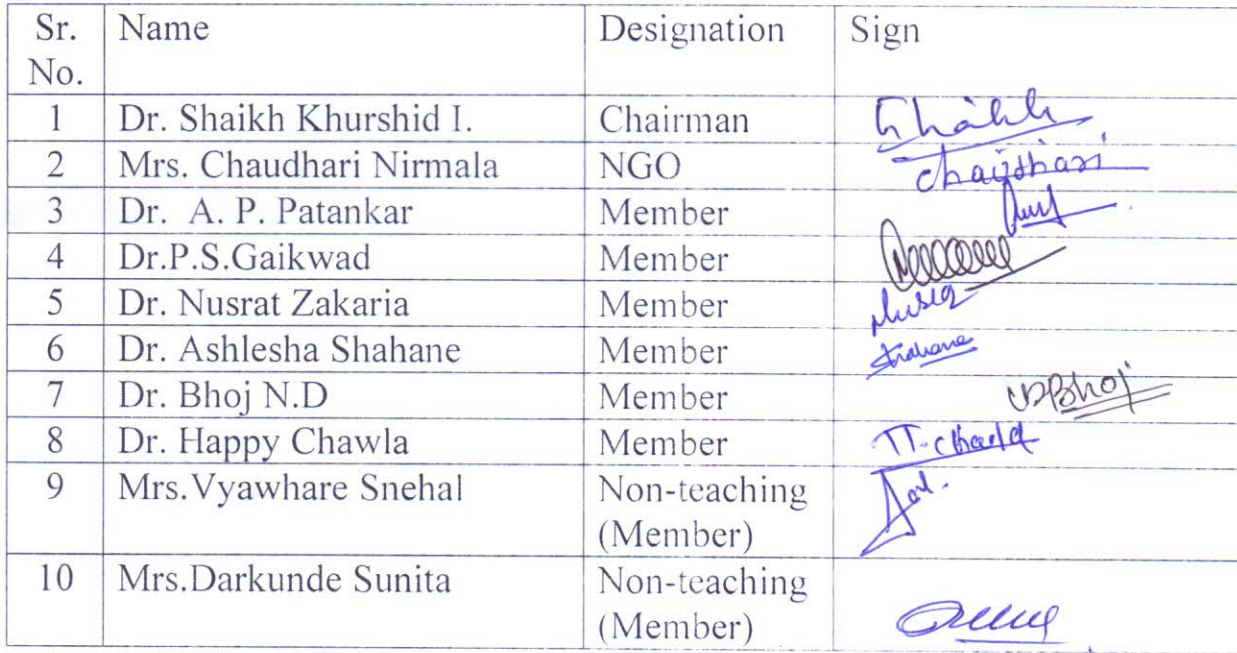 Sr. Name Designation Sign
No.
1 Dr. Shaikh Khurshid I. Chairman
2 Mrs. Chaudhari Nirmala NGO Chaudhari
3 Dr. A. P. Patankar Member
4 Dr.P.S.Gaikwad Member
5 Dr. Nusrat Zakaria Member
6 Dr. Ashlesha Shahane Member Shahane
7 Dr. Bhoj N.D Member NDBhoj
8 Dr. Happy Chawla Member
9 Mrs.Vyawhare Snehal Non-teaching
(Member)
10 Mrs.Darkunde Sunita Non-teaching
(Member)